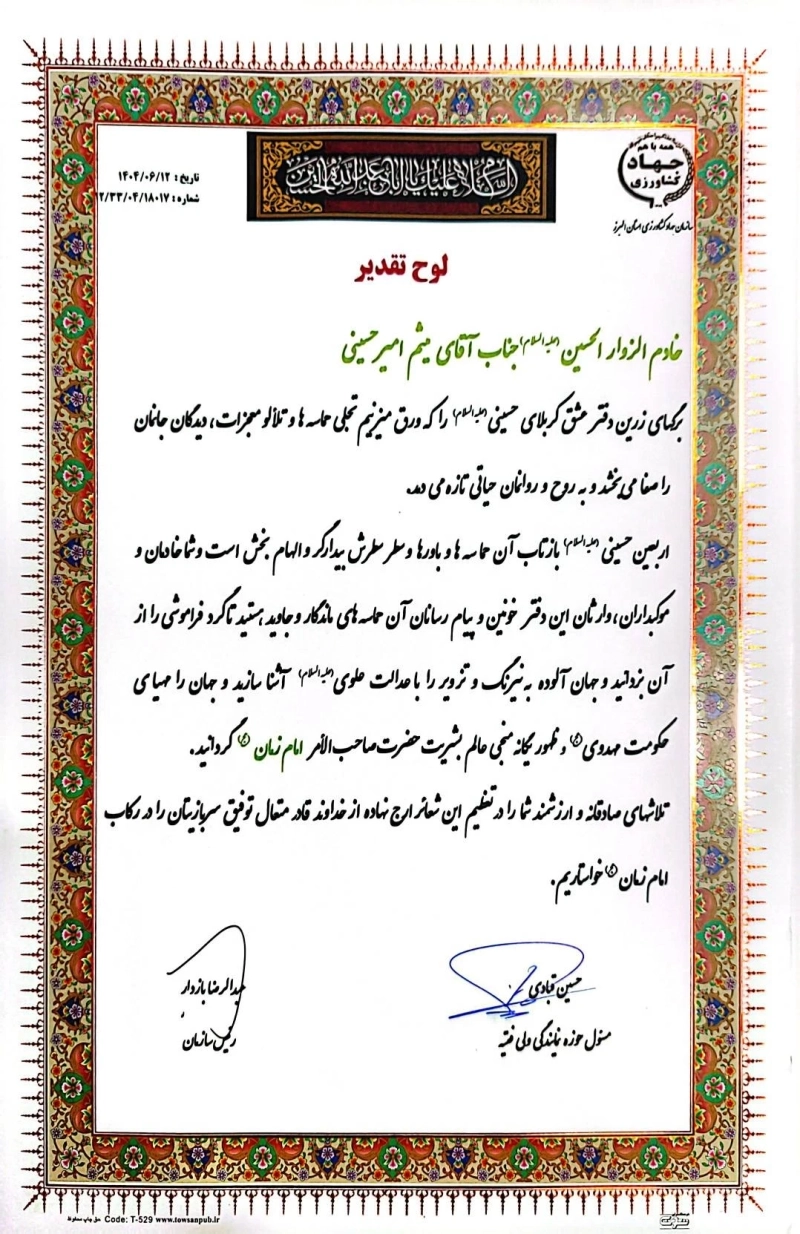 همه با هم
جهاد
کشاورزی
سازمان جهاد کشاورزی استان البرز
السلام علیک یا اباعبدالله الحسین
تاریخ: ۱۴۰۴/۰۶/۱۲
شماره: ۲/۳۳/۰۴/۱۸۰۱۷
لوح تقدیر
خادم الزوار الحسین (علیه السلام) جناب آقای میثم امیرحسینی
برگهای زرین دفتر عشق کربلای حسینی (علیه السلام) را که ورق میزنیم تجلی حماسه ها و تلألو معجزات، دیدگان جانمان
را صفا می بخشد و به روح و روانمان حیاتی تازه می دهد.
اربعین حسینی (علیه السلام) بازتاب آن حماسه ها و باورها و سطر سطرش بیدارگر و الهام بخش است و شما خادمان و
موکبداران، وارثان این دفتر خونین و پیام رسانان آن حماسه های ماندگار و جاوید هستید تا گرد فراموشی را از
آن بزدائید و جهان آلوده به نیرنگ و تزویر را با عدالت علوی (علیه السلام) آشنا سازید و جهان را مهیای
حکومت مهدوی (عج) و ظهور یگانه منجی عالم بشریت حضرت صاحب الأمر امام زمان (عج) گردانید.
تلاشهای صادقانه و ارزشمند شما را در تعظیم این شعائر ارج نهاده از خداوند قادر متعال توفیق سربازیتان را در رکاب
امام زمان (عج) خواستاریم.
حسین قبادی
مسئول حوزه نمایندگی ولی فقیه
عبدالرضا بازدار
رئیس سازمان
حق چاپ محفوظ Code: T-529 www.towsanpub.ir